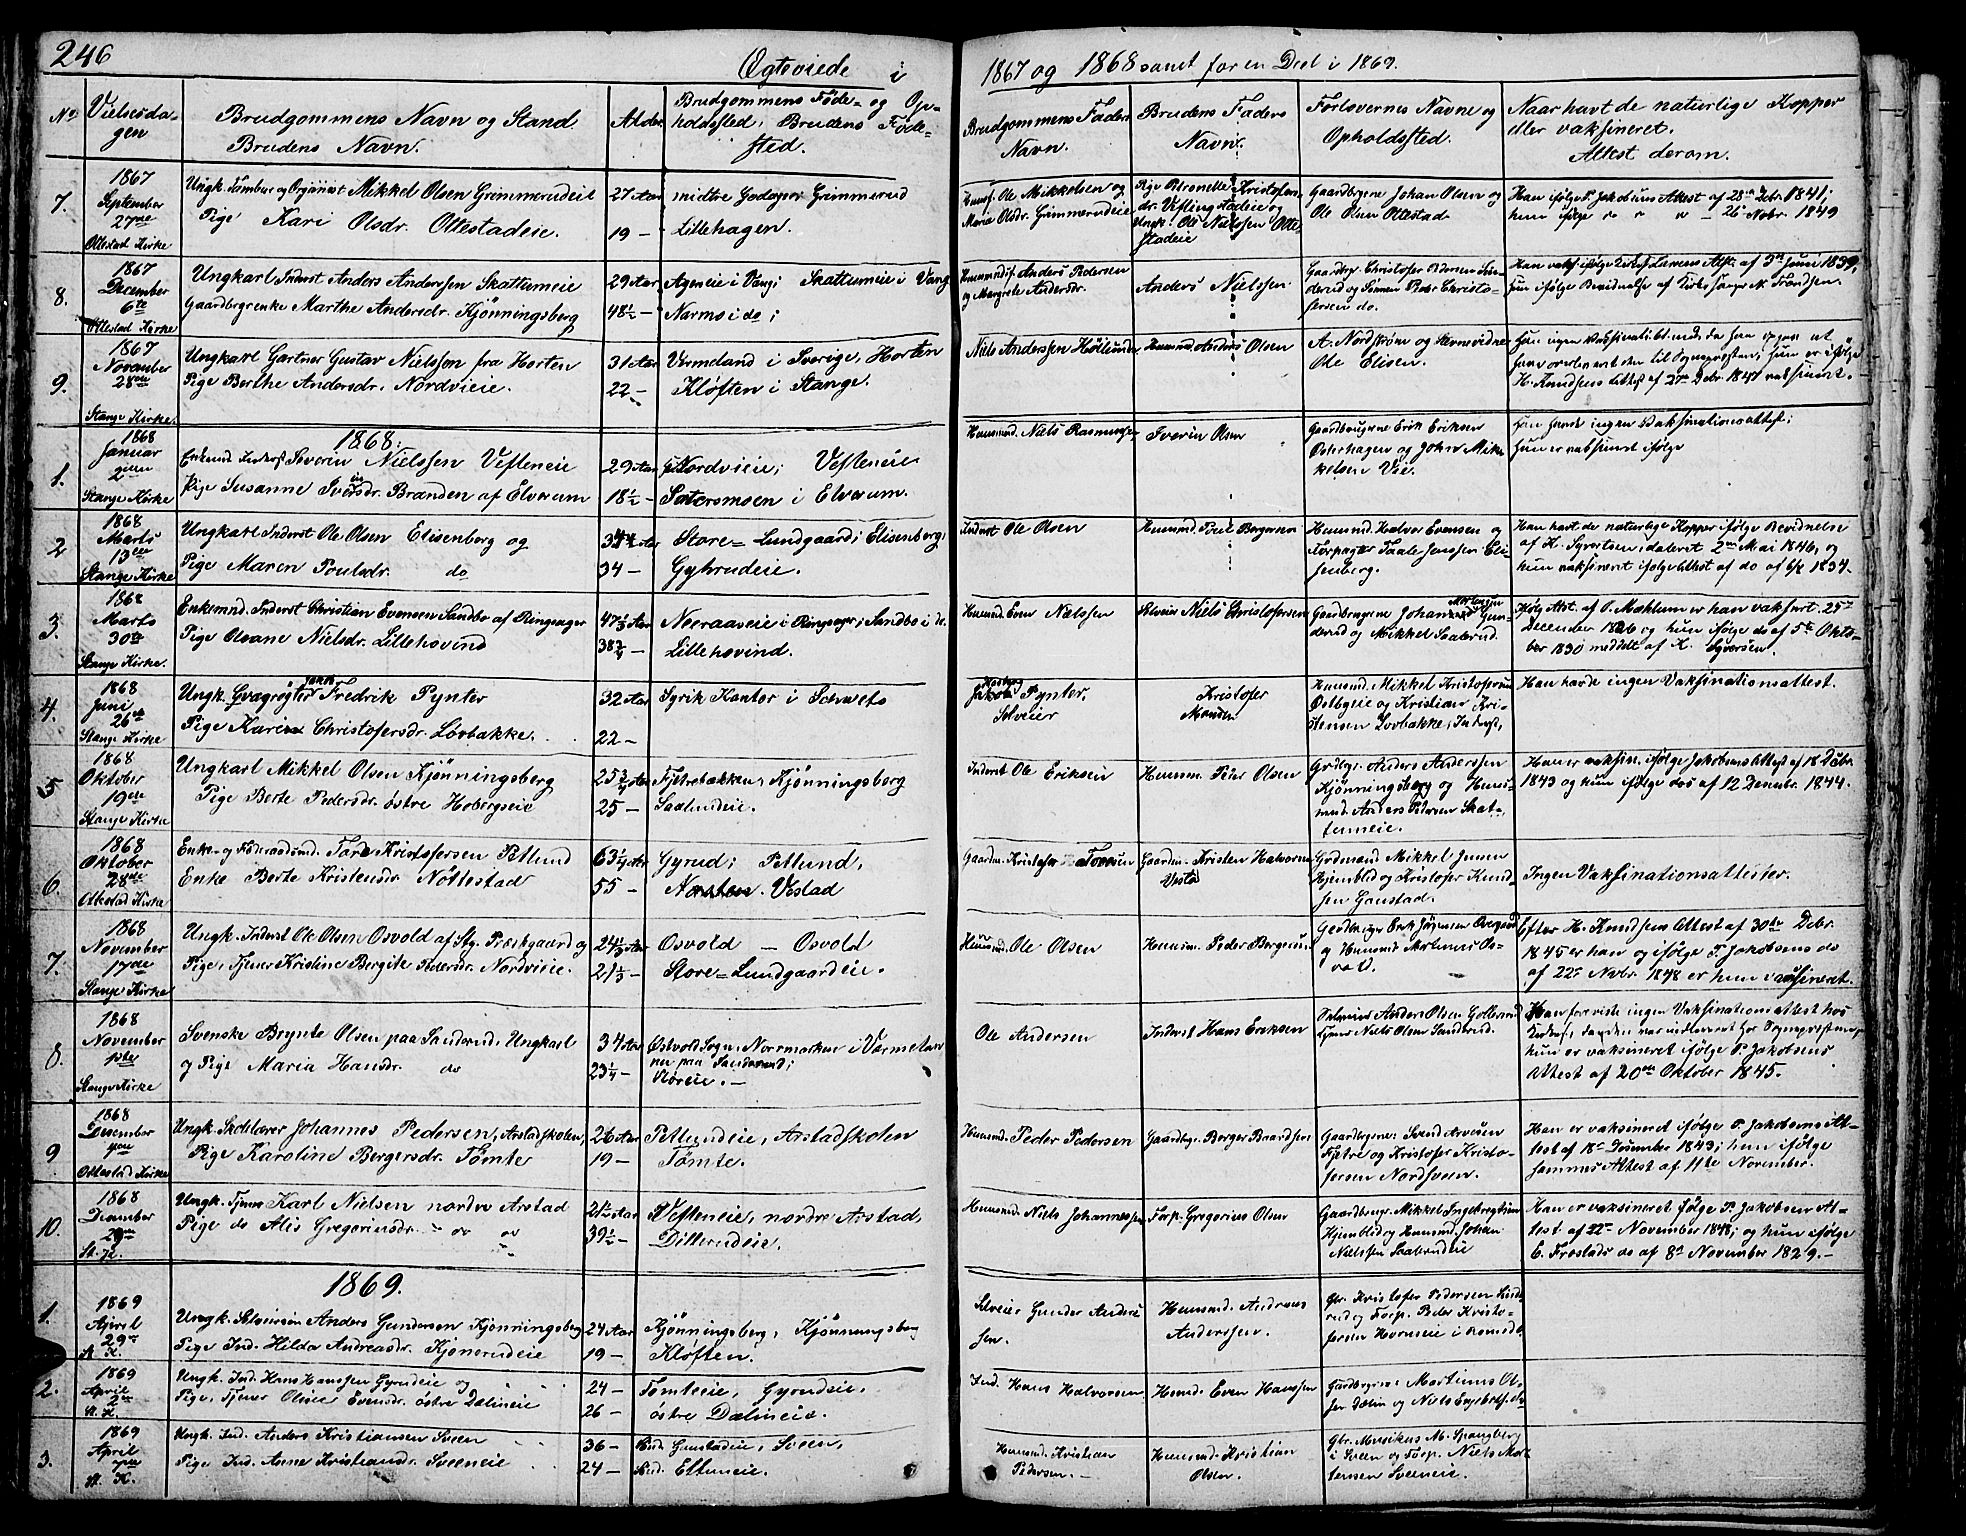 246
Ægteviede i 1867 og 1868 samt for en Deel i 1869.
No
Vielsesda-
gen
Brudgommens Navn og Stand
Brudens Navn.
Alder
Brudgommens Føde- og Op-
holdssted, Brudens Føde-
sted.
Brudgommens Faders
Navn.
Brudens Faders
Navn.
Forlovernes Navne og
Opholdssted.
Naar havt de naturlige Kopper
eller vaksineret.
Attest derom.
7.
1867
September
27de
Ottestad Kirke
Ungk. Tambur og Organist Mikkel Olsen Grimmerudeie
Pige Kari Olsdr. Ottestadeie.
27 Aar
19 -
midtre Godager Grimmerud
Lillehagen.
Husm. Ole Mikkelsen og
Marie Olsdr. Grimmerudeie
Pige Petronelle Kristofers-
dr. Vestlingstadeie og
Ungk. Ole Nielssen Otte-
stadeie
Gaardbrgerne Johan Olsen og
Ole Olsen Ottestad
Han ifølge P. Jakobsens Attest af 28de Debr. 1841;
hun ifølge - 26 Nobr. 1849
8.
1867
December
6te
Ottestad Kirke
Ungkarl Inderst Anders Anderssen Skattumeie
Gaardbrgrenke Marthe Andersdr. Kjønningsberg
29 Aar
48½ -
Ageneie i Vang; Skattumeie i Vang
Narmo i do;
Husmandsf. Anders Pedersen
og Margrete Andersdr.
Anders Nielssen
Gaardbrg. Christofer Pedersen Sen-
derud og Simen Peder Christo-
fersen do.
9.
1867
November
28de
Stange Kirke.
Ungkarl Gartner Gustav Nielssen fra Horten
Pige Berthe Andersdr. Nordvieie.
31 Aar
22 -
Vermland i Sverige, Horten
Kløften i Stange.
Niels Anderssen
Husmnd. Anders Olsen
A. Nordstrøm og
Ole Elisen.
H. Knudsens Attest af 27de Debr. 1847 vaksineret.
1868.
1.
1868
Januar
2den
Stange Kirke
Enkemd Inderst Severin Nielssen Vesteneie
Pige Susanne Iversdr. Branden af Elverum
29 Aar
18½ -
Nordvieie; Vesteneie
Sætersmoen i Elverum.
Husmnd. Niels Rasmussen
Iverin Olsen
Gaardbrugerne Erik Eriksen
Østerhagen og John Mik-
kelsen Vie.
Han havde ingen Vaksinationsattest;
hun er vaksineret ifølge
2
1868
Marts
13de
Stange Kirke
Ungkarl Inderst Ole Olsen Elisenberg og
Pige Maren Poulsdr. do
34 Aar
34 -
Store=Lundgaard; Elisenberg;
Gyhrudeie.
Inderst Ole Olsen
Husmnd. Poul Bergersen
Husmnd. Halvor Evensen og
Forpagter Taale Jenssen Eli-
senberg.
Han havt de naturlige Kopper ifølge Bevidnelse
af H. Syvertsen, dateret 2den Mai 1846, og
hun vaksineret ifølge Attest af do af 6/8 1834.
3.
1868
Marts
30te
Stange Kirke.
Enkemnd. Inderst Christian Evensen Sandbo af Ringsager
Pige Olvane Nielsdr. Lillehovind
47⅔ Aar
38¾ -
Neeraaveie i Ringsager; Sandbo i do.
Lillehovind.
Husmnd. Even Nielssen
Selveier Niels Christofersen
Gaardbrugerne Johannes Mortensen Gun-
derud og Mikkel Saalerud.
Ifølg Atst. af P. Mæhlum er han vaksnrt. 25de
December 1826 og hun ifølge do af 5te Okto-
ber 1830 meddelt af K. Syversen.
4.
1868
Juni
26de
Stange Kirke
Ungk. Qvægrøgter Jakob Fredrik Pynter
Pige Karine Christofersdr. Løvbakke.
32 Aar
22 -
Syrik Kantor i Schweits
Jakob Pynter,
Selveier
Kristofer
Monsen
Husmnd. Mikkel Kristofersen
Østbyeie og Kristian Kri-
stensen Lovbakke, Inderst,
Han havde ingen Vaksinationsattest.
5
1868
Oktober
19de
Stange Kirke
Ungkarl Mikkel Olsen Kjønningsberg
Pige Berte Pedersdr. østre Hobergseie
25¾ Aar
25 -
Fjetrebakken, Kjønningsberg
Saalrudeie.
Inderst Ole Eriksen
Husmn. Peder Olsen
Grdbgr. Anders Anderssen
Kjønningsberg og Hus-
mnd. Anders Pedersen Skat-
tumeie.
Han er vaksine. ifølge Jakobsens Attest af 18 Debr.
1843 og hun ifølge dos af 12 Desembr. 1844.
6.
1868
Oktober
28de
Ottestad Kirke
Enke- og Føderaadsmd. Tore Kristofersen Petlund
Enke Berte Kristensdr. Nøttestad
63¼ Aar
55 -
Gyrud; Petlund,
Norsten. Vestad
Gaardm. Kristofer Toresen
Gaardm. Kristen Halvorsen
Vesta
Grdmand Mikkel Jensen
Hjemblid og Kristofer Knud-
sen Gaustad.
Ingen Vaksinationsattester.
7.
1868
November
17de
Stange Kirke
Ungk. Inderst Ole Olsen Osvold af Stg. Præstgaard og
Pige, Tjener Kristine Bergite Pedersdr. Nordvieie.
24⅓ Aar
21⅓ -
Osvold - Osvold
Store=Lundgaardeie.
Husmnd. Ole Olsen
Husmn. Peder Bergersen
Grdbruger Erik Jørgensen Overgaard
og Husmnd
Efter H. Knudsens Attest af 30te Debr.
1845 er han og ifølge P. Jakobsens do
af 22de Nobr. 1848 er hun vaksineret.
8.
1868
November
1ste
Stange Kirke
Svenske Brynte Olsen paa Sanderud, Ungkarl
og Pige Maria Hansdr. do
34 Aar
23¼ -
Østvold Sogn, Norrmarken i Vermelan
nu paa Sanderud;
Nøreie. -
Ole Andersen
Inderst Hans Eriksen
Selveier Anders Olsen Gollerud
Tjener Niels Olsen Sanderud.
Han foreviste ingen Vaksinationsattest hos
hun er vaksineret ifølge P. Jakobsens
Attest af 20de Oktober 1845.
9
1868
Desember
Ottestad Kirke
Ungk. Skolelærer Johannes Pedersen, Arstadskolen,
Pige Karoline Bergersdr. Tømte
26 Aar
19 -
Petlundeie, Arstadskolen
Tømte.
Husmnd. Peder Pedersen
Gaardbgr. Berger Baardsen
Gaardbrgerne: Svend Arvesen
Fjetre og Kristofer Kristo-
fersen Nordsveen.
Han er vaksineret ifølge P. Jakobsens At-
test af 18de Desember 1843; hun ifølge
sammes Attest af 11te November.
10.
1868
Desember
29de
St. K.
Ungk. Tjener Karl Nielsen nordre Arstad
Pige do Alis Gregoriusdr. - do do
21½ Aar
39½ -
Vesteneie, nordre Arstad,
Dillerudeie.
Husmnd. Niels Johannessen
Forp. Gregorius Olsen
Gaardbrugr. Mikkel Ingebregtsen
Hjemblid og Husmnd. Johan
Nielssen Saalerudeie
Han er vaksineret ifølge P. Jakobsen At-
test af 22de November 1848; og hun ifølge
E. Frostads do af 8de November 1829. -
1869.
1.
1869
April
29de
St. K.
Ungk. Selveiersøn Anders Gundersen Kjønningsberg
Pige Ind. Hilda Andreasdr. Kjonerudeie
24 Aar
19 -
Kjønningsberg, Kjønningsberg
Kløften.
Selveier Gunder Anders-
sen.
Husmnd. Andreas
Anderssen.
Gbr. Kristofer Pedersen Sinde-
rud og Forp. Peder Kristo-
fersen Horneie i Romedal
2.
1869
April
2den
St. K.
Ungk. Ind. Hans Hanssen Gyrudeie og
Pige, Tjener Olsine Evensdr. østre Dælineie
24 -
26 -
Tomteeie, Gyrudeie.
østre Dælineie.
Ind. Hans Halvorsen
Husmd. Even Hanssen
Gardbrgerne: Martinus Ol-
sen Dælin og Niels Engebretsen do
3.
1869
April
St. K.
Ungk. Ind. Anders Kristiansen Sveen
Pige Ind. Anne Kristiansdr. Sveeneie
36 -
24 -
Gustadeie, Sveen,
Ellumeie.
Husmnd. Kristian
Pedersen. -
Husmnd. Kristian
Olsen.
Gbr. Musikus M. Spangberg
i Sveen og Forp. Niels Mor-
tensen Sveeneie.